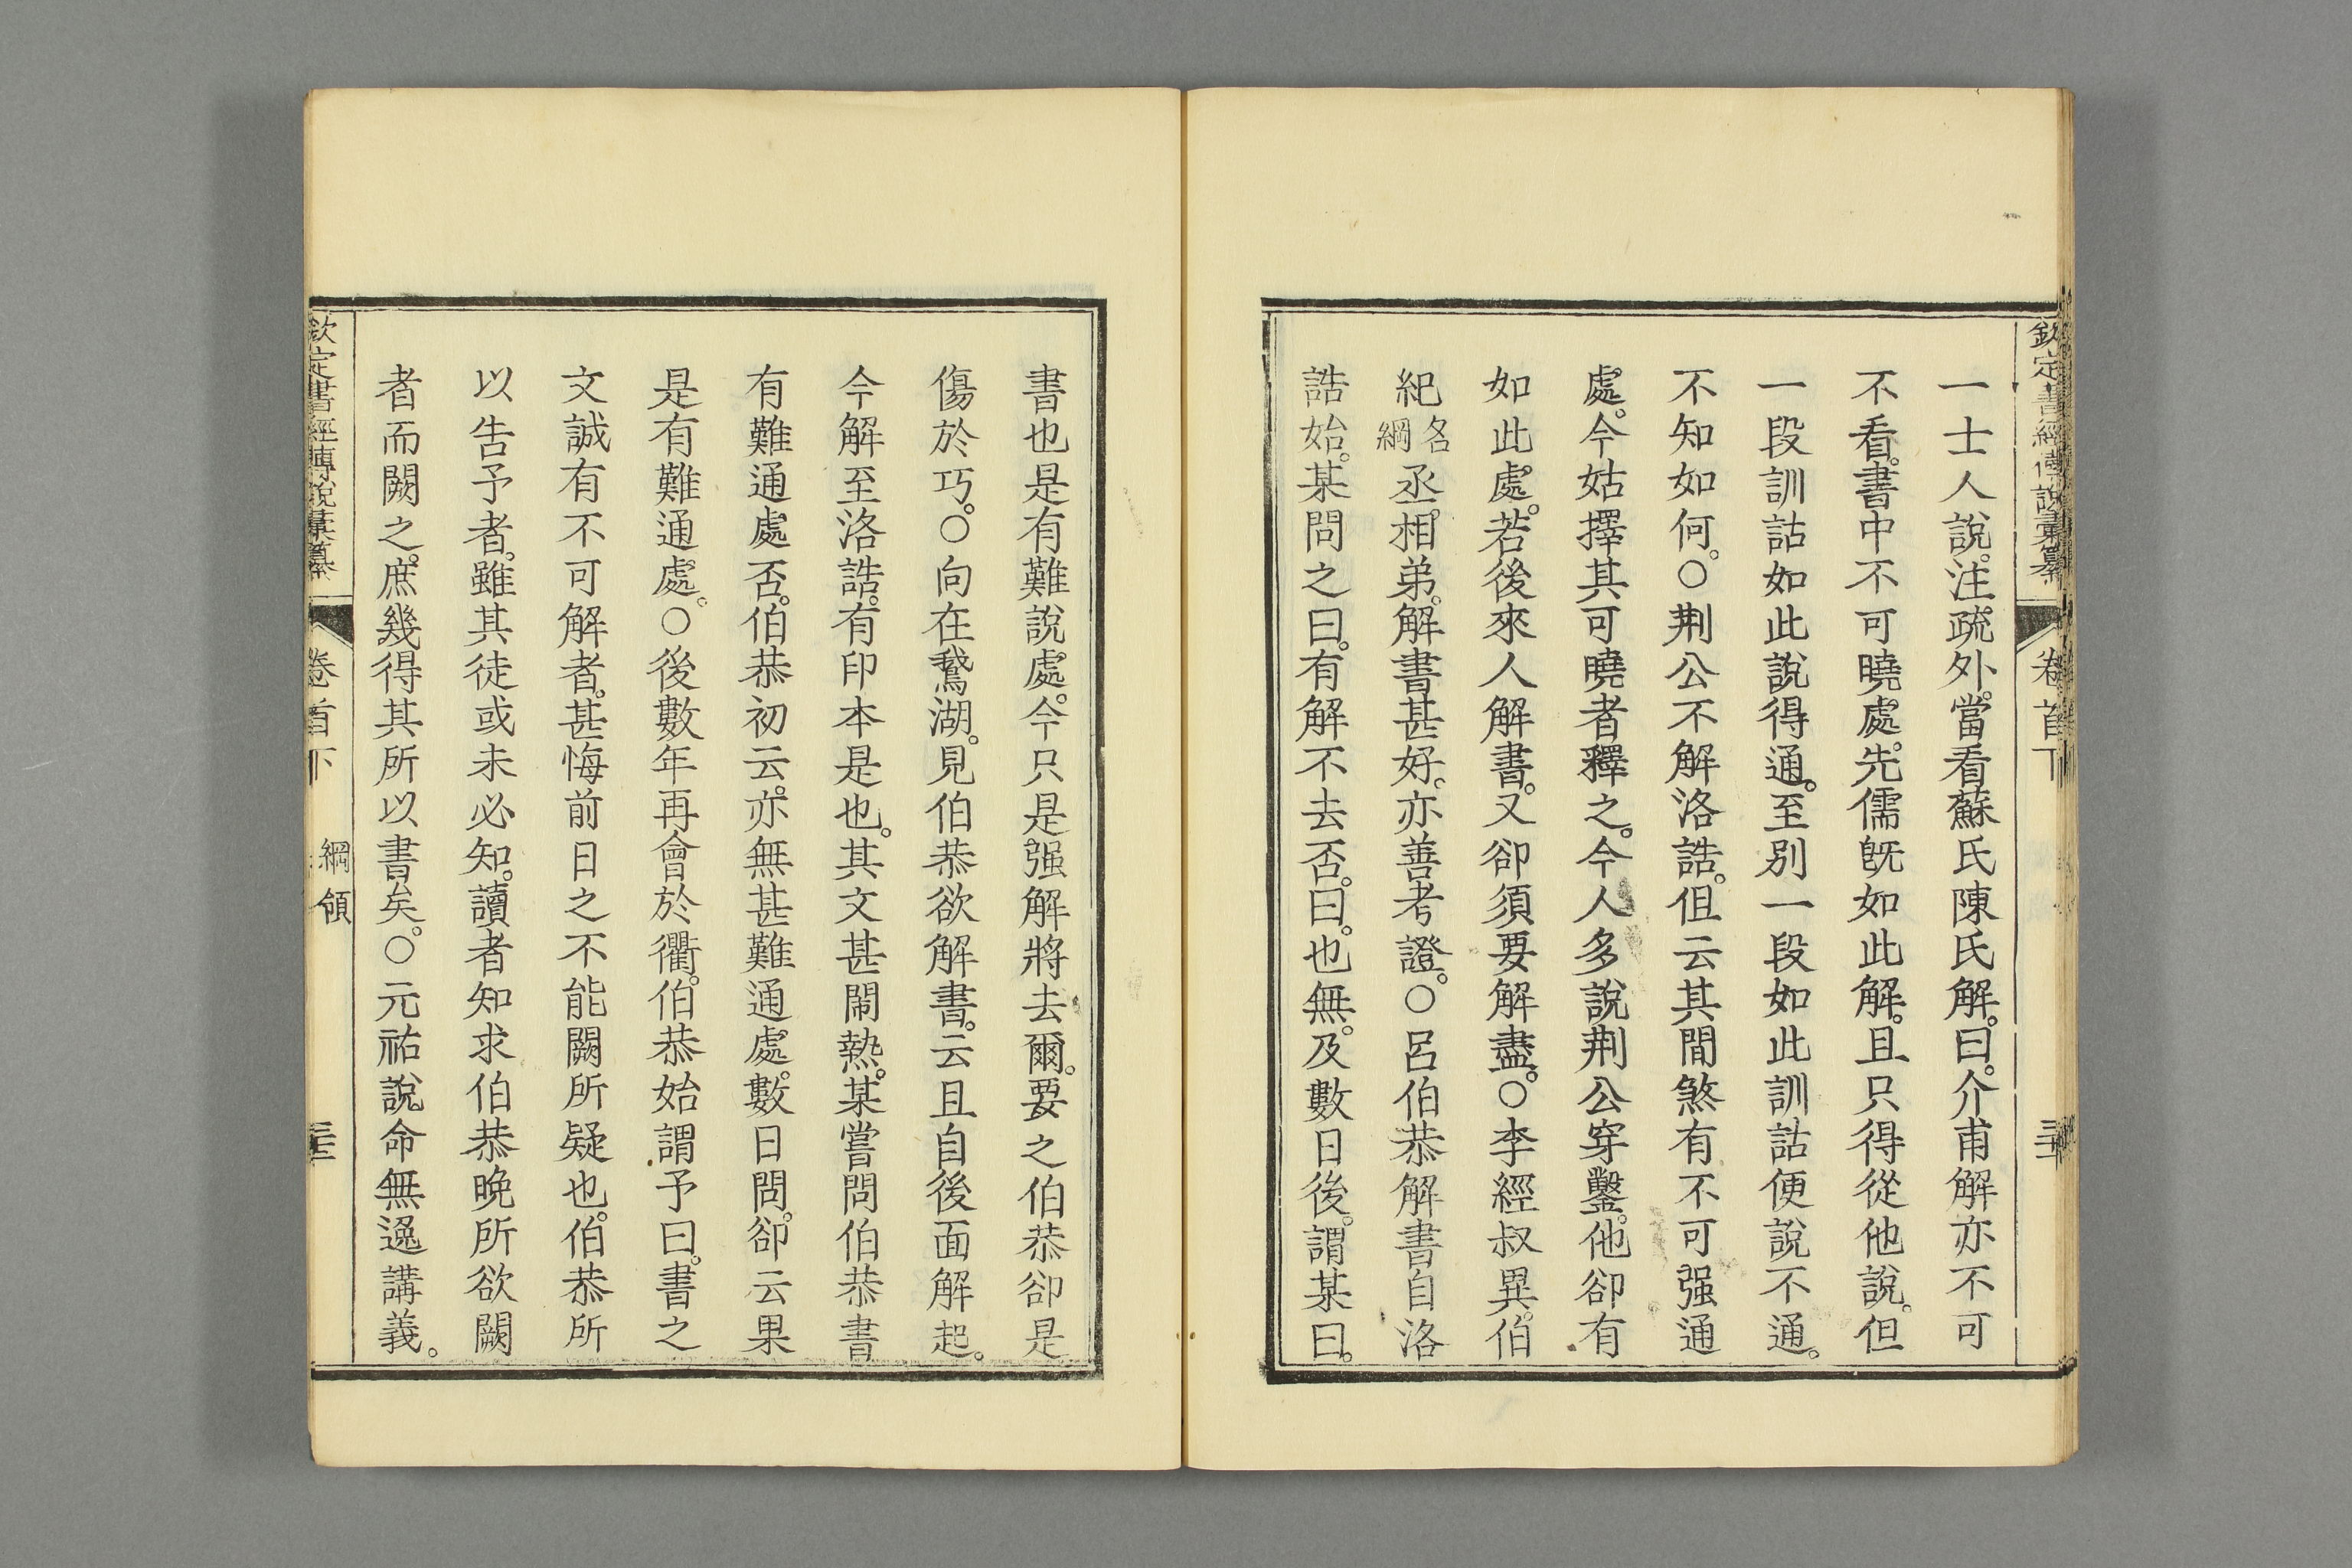 欽定書經傳說彙纂 卷首下
一士人說。注疏外。當看蘇氏陳氏解。曰。介甫解亦不可
不看。書中不可曉處。先儒旣如此解。且只得從他說。但
一段訓詁如此說得通。至別一段如此訓詁便說不通。
不知如何。○荆公不解洛誥。但云其間煞有不可强通
處。今姑擇其可曉者釋之。今人多說荆公穿鑿。他卻有
如此處。若後來人解書。又卻須要解盡。○李經叔異。伯
紀名綱丞相弟。解書甚好。亦善考證。○呂伯恭解書自洛
誥始。某問之曰。有解不去否。曰。也無。及數日後。謂某曰。
書也是有難說處。今只是强解將去爾。要之伯恭卻是
傷於巧。○向在鵞湖。見伯恭欲解書。云且自後面解起。
今解至洛誥。有印本是也。其文甚閙熱。某嘗問伯恭書
有難通處否。伯恭初云。亦無甚難通處。數日問。卻云果
是有難通處。○後數年再會於衢。伯恭始謂予曰。書之
文誠有不可解者。甚悔前日之不能闕所疑也。伯恭所
以告予者。雖其徒或未必知。讀者知求伯恭晚所欲闕
者而闕之。庶幾得其所以書矣。○元祐說命無逸講義。
欽定書經傳說彙纂 卷首下 綱領